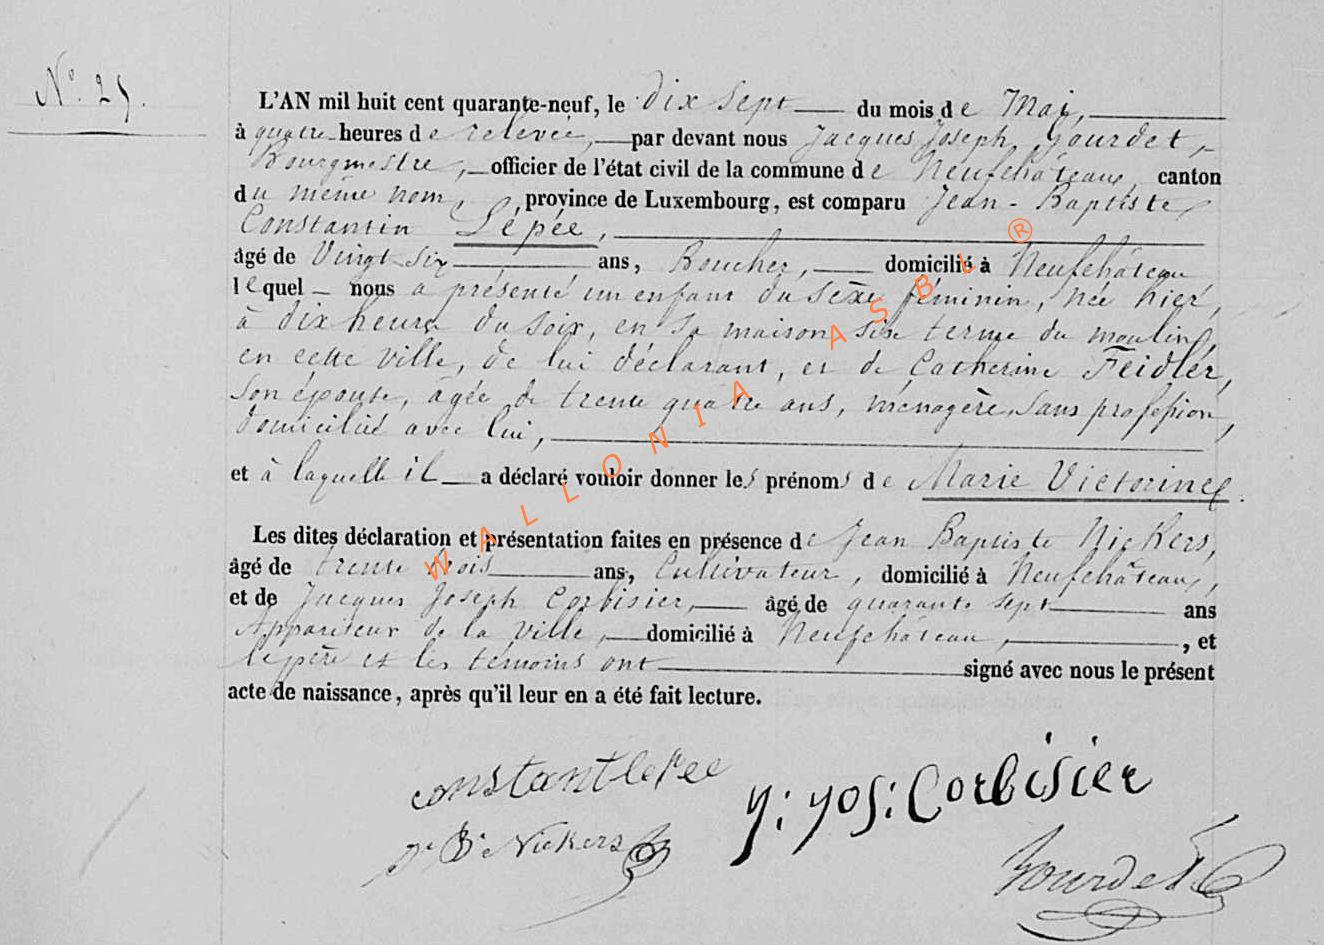 N°. 25.
L'AN mil huit cent quarante-neuf, le dix sept du mois de Mai,
à quatre heures de relevée, par devant nous Jacques Joseph Gourdet,
Bourgmestre, officier de l'état civil de la commune de Neufchâteau, canton
du même nom, province de Luxembourg, est comparu Jean-Baptiste
Constantin Lépée,
âgé de Vingt six ans, Boucher, domicilié à Neufchâteau
lequel nous a présenté un enfant du sexe féminin, née hier,
à dix heures du soir, en sa maison sise terme du moulin,
en cette ville, de lui déclarant, et de Catherine Feidler,
son épouse, âgée de trente quatre ans, ménagère, sans profession,
domiciliée avec lui,
et à laquelle il a déclaré vouloir donner les prénoms de Marie Victorine.
Les dites déclaration et présentation faites en présence de Jean Baptiste Nickers,
âgé de trente trois ans, Cultivateur, domicilié à Neufchâteau,
et de Jacques Joseph Corbisier, âgé de quarante sept ans
Appariteur de la ville, domicilié à Neufchâteau, , et
le père et les témoins ont signé avec nous le présent
acte de naissance, après qu'il leur en a été fait lecture.
constant lepee
J: Jos: Corbisier
Jn Bte Nickers
Gourdet
WALLONIA ASBL ®